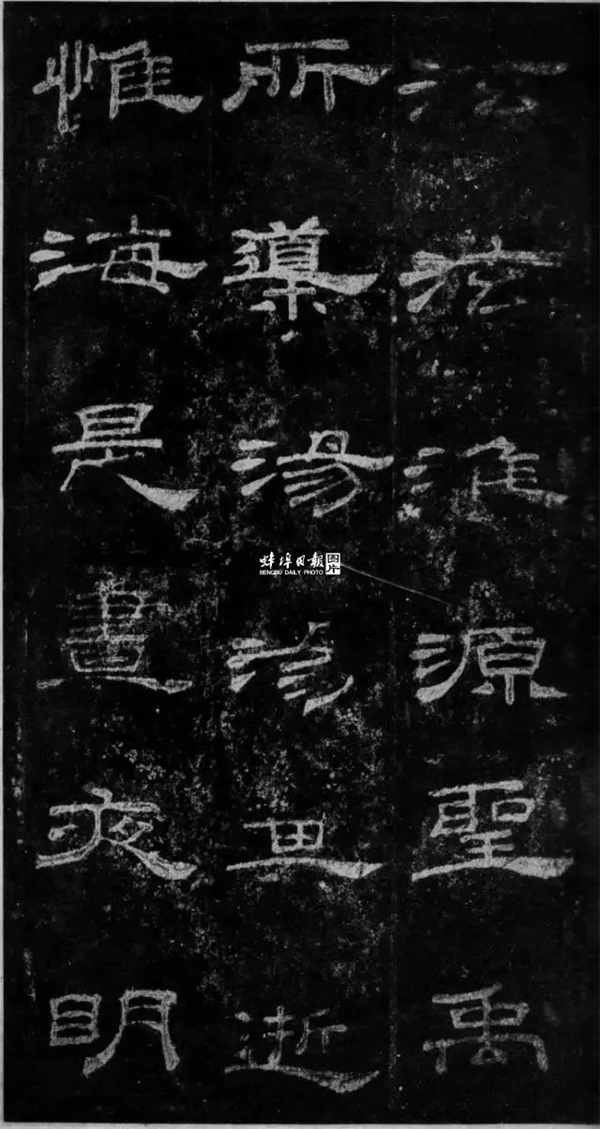 淮源聖禹
所導湯湯其逝
惟海是晝夜明
蚌埠日報 图片
BENGBU DAILY PHOTO